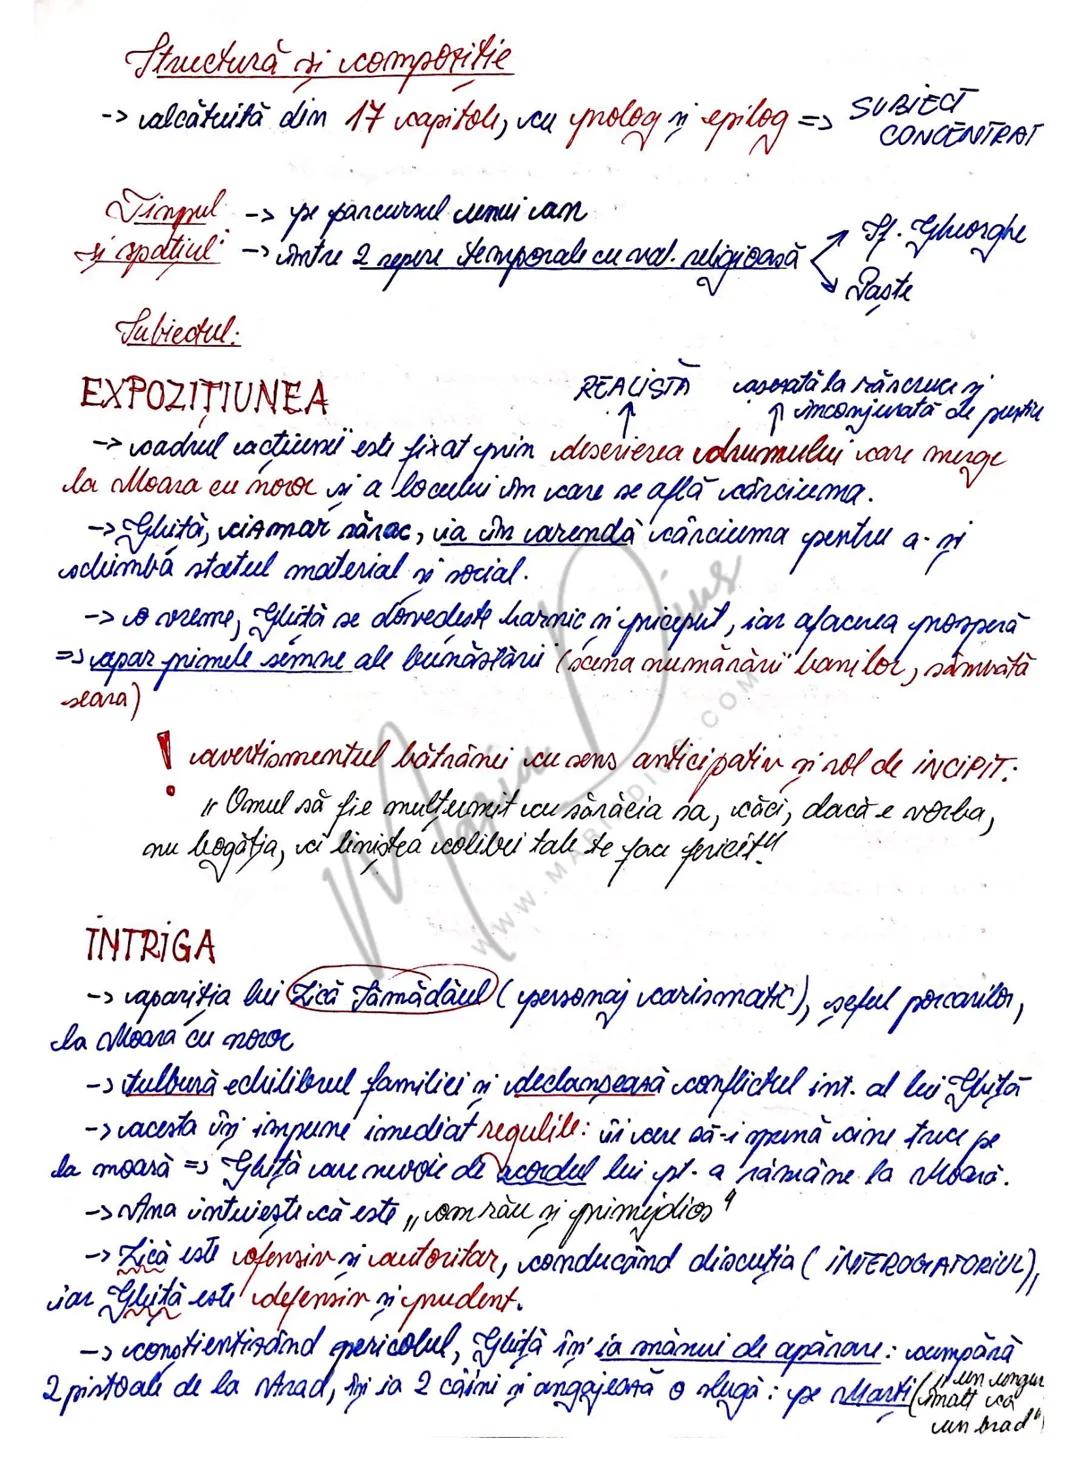 Structură și compoziție
-> alcătuită din 17 capitole, cu prolog și epilog => SUBIECT
CONCENTRAT
Timpul -> pe parcursul unui an
și spațiul -> între 2 repere temporale cu val. religioasă
Sf. Gheorghe
Paște
Subiectul:
EXPOZIȚIUNEA
REALISTĂ
așezată la răscruce și
înconjurată de pustiu
-> cadrul acțiunii este fixat prin descrierea drumului care merge
la Moara cu noroc și a locului în care se află cârciuma.
-> Ghiță, cizmar sărac, ia în arendă cârciuma pentru a-și
schimbă statul material și social.
-> o vreme, Ghiță se dovedește harnic și priceput, iar afacerea prosperă
=> apar primele semne ale bunăstării (scena numărării banilor, sâmbătă
seara)
! avertismentul bătrânei cu sens anticipativ și rol de INCIPIT:
"Omul să fie mulțumit cu sărăcia sa, căci, dacă e vorba,
nu bogăția, ci liniștea colibei tale te face fericit"
INTRIGA
-> apariția lui Lică Sămădăul (personaj carismatic), șeful porcarilor,
la Moara cu noroc
-> tulbură echilibrul familiei și declanșează conflictul int. al lui Ghiță
-> acesta își impune imediat regulile: îi cere să-i spună cine trece pe
la moară => Ghiță are nevoie de acordul lui pt. a rămâne la Moară.
-> Ana intuiește că este „om rău și primejdios"
-> Lică este ofensiv și autoritar, conducând discuția (INTEROGATORIUL),
iar Ghiță este defensiv și prudent.
-> conștientizând pericolul, Ghiță își ia măsuri de apărare: cumpără
2 pistoale de la Arad, își ia 2 câini și angajează o slugă: pe Marți ("un ungur
înalt ca
un brad")
Marian Dius
WWW.MARIADIUS.COM